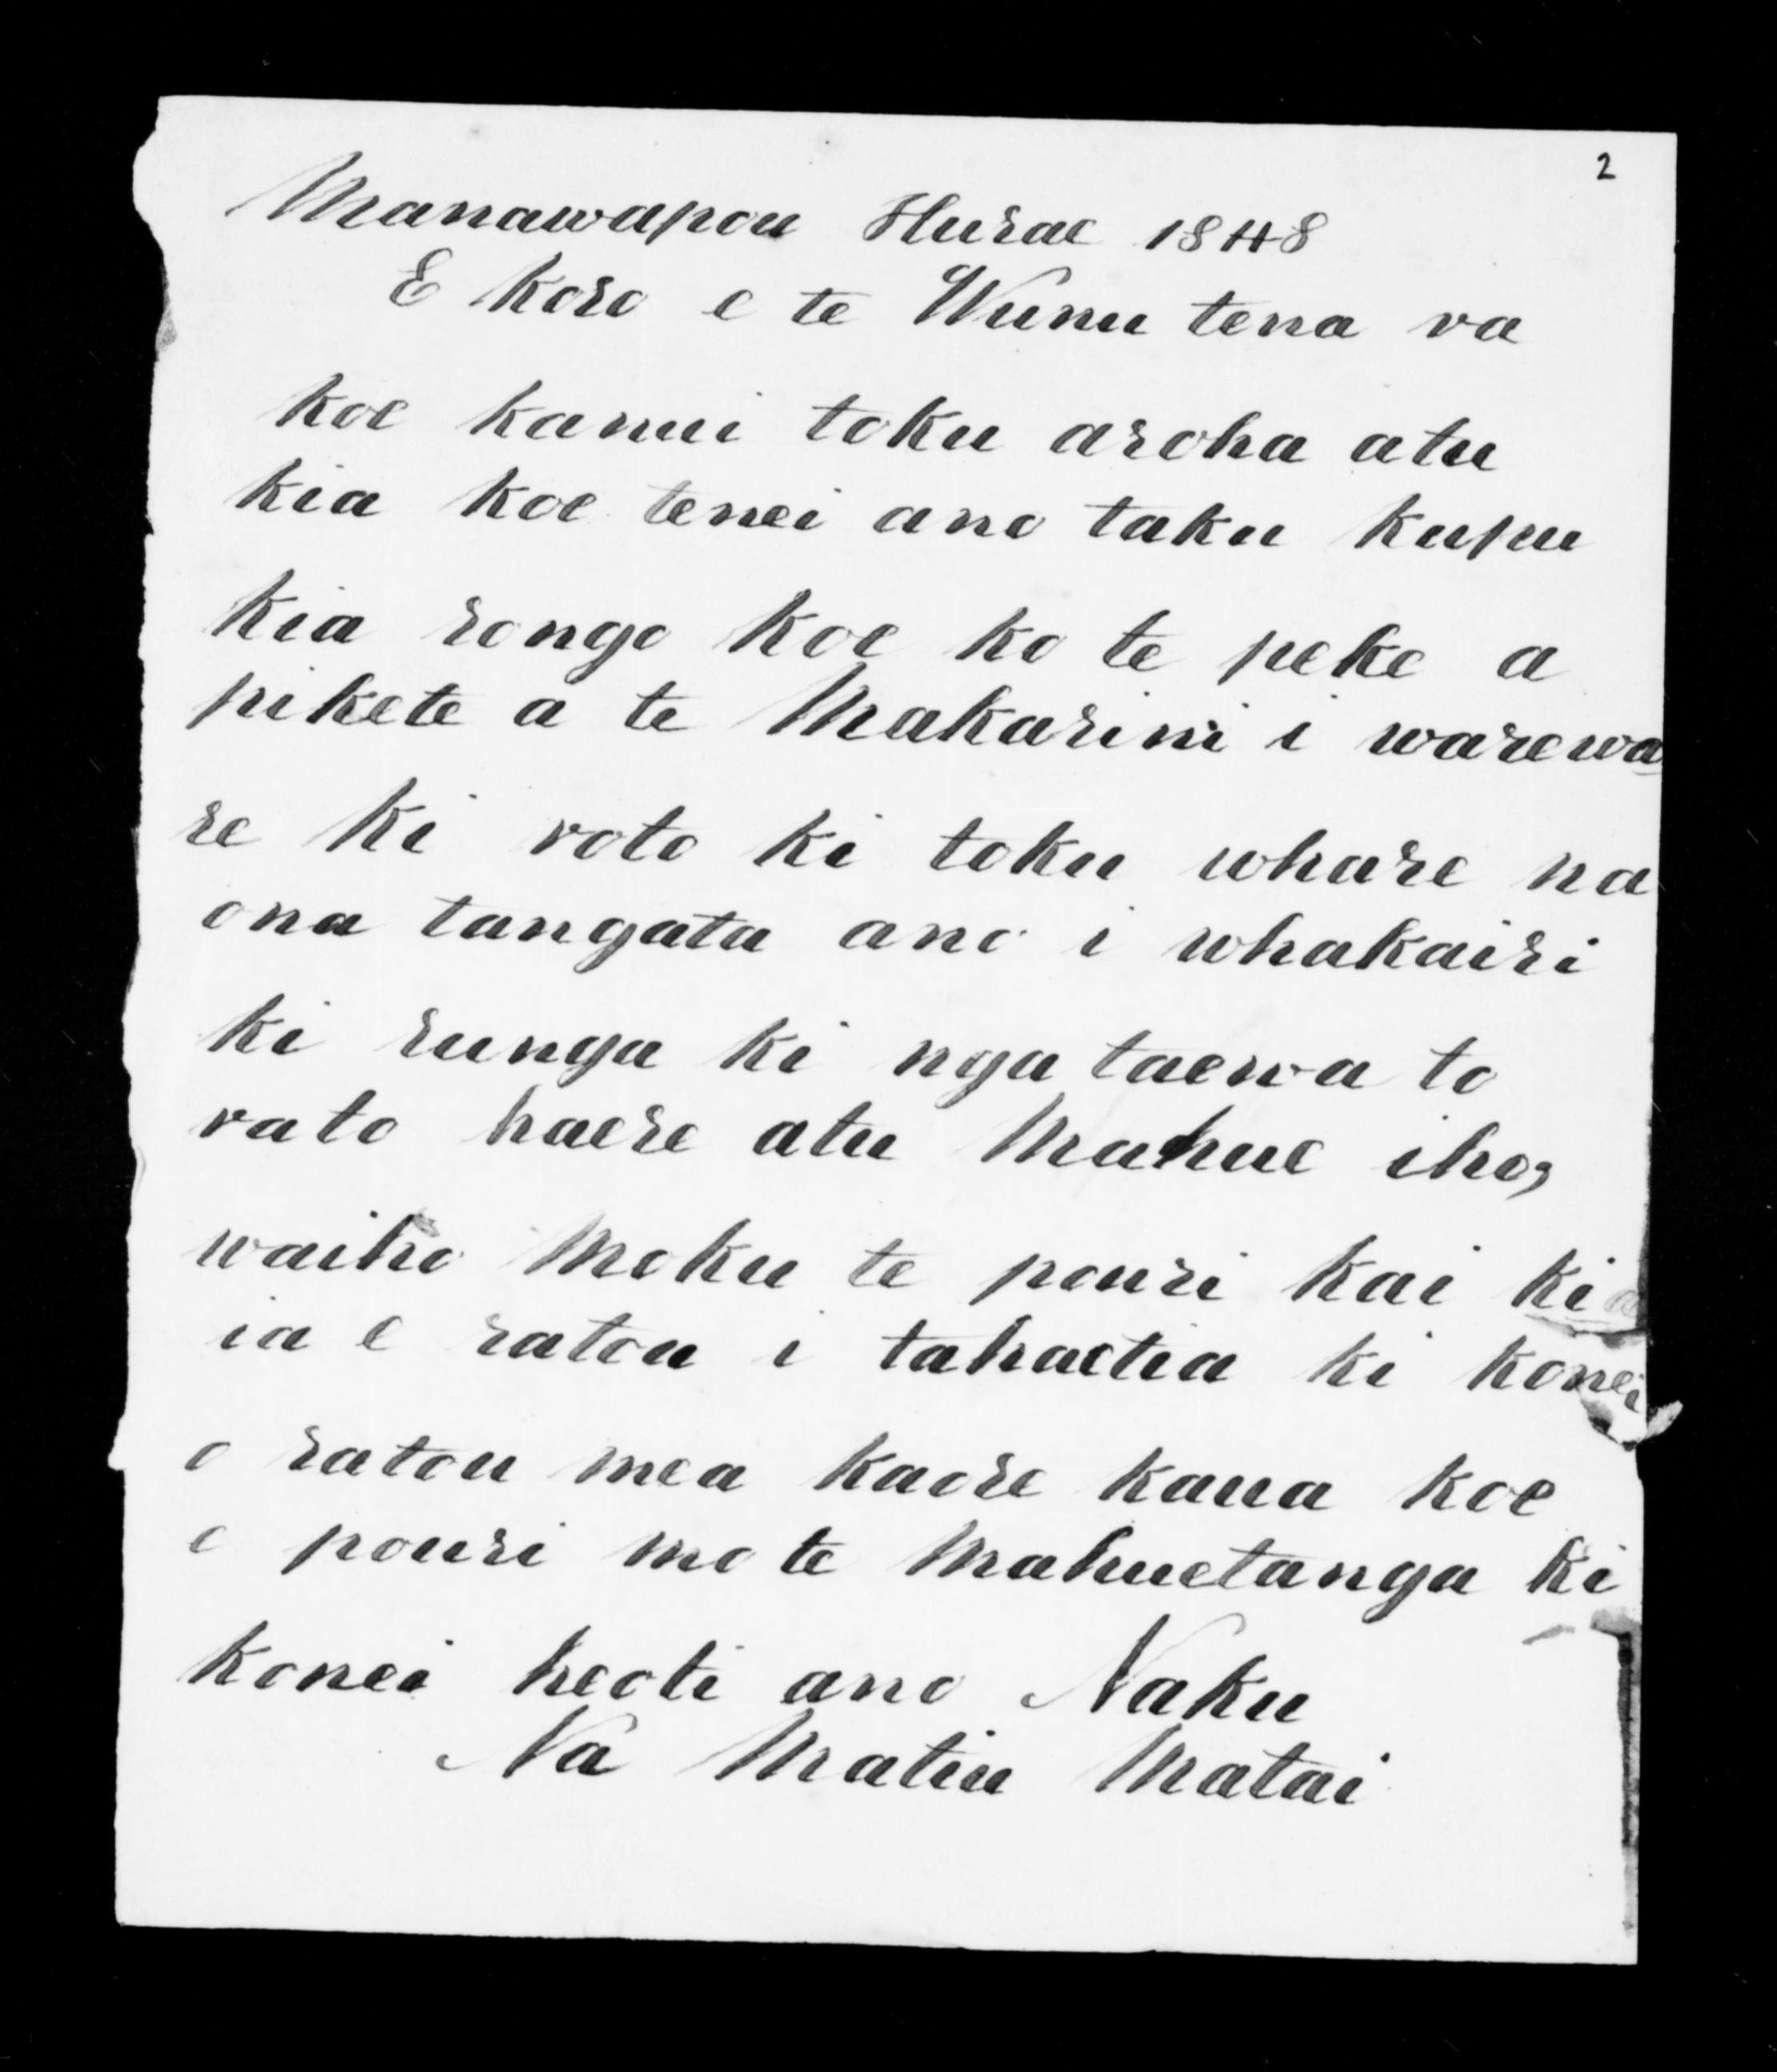 2
Manawapou Hurae 1848
E koro e te Wunu tena ra
koe kanui toku aroha atu
kia koe tenei ano taku kupu
kia rongo koe ko te peke a
pikete a te Makarini i warewa
re ki roto ki toku whare na
ona tangata ano i whakairi
ki runga ki nga taewa to
rato haere atu Mahue iho,
waiho Moku te pouri kai kia
ia e ratou i tahaetia ki konei
o ratou mea kaore kaua koe
e pouri mo te Mahuetanga ki
konei heoti ano Naku
Na Matiu Matai